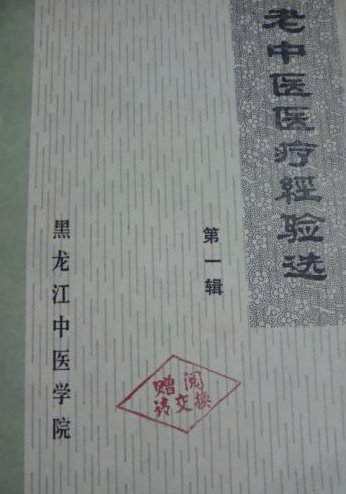 老中医医疗經验选
第一辑
黑龙江中医学院
赠阅
请交换